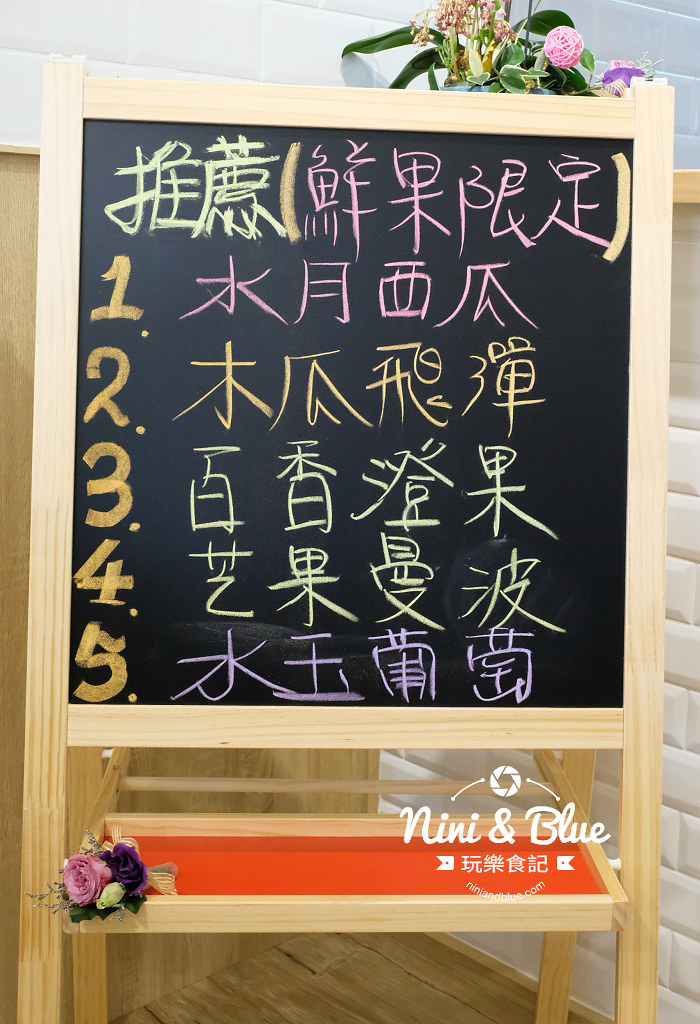 推薦(鮮果限定)
1. 水月西瓜
2. 木瓜飛彈
3. 百香澄果
4. 芒果曼波
5. 水玉葡萄
Nini & Blue
玩樂食記
niniandblue.com